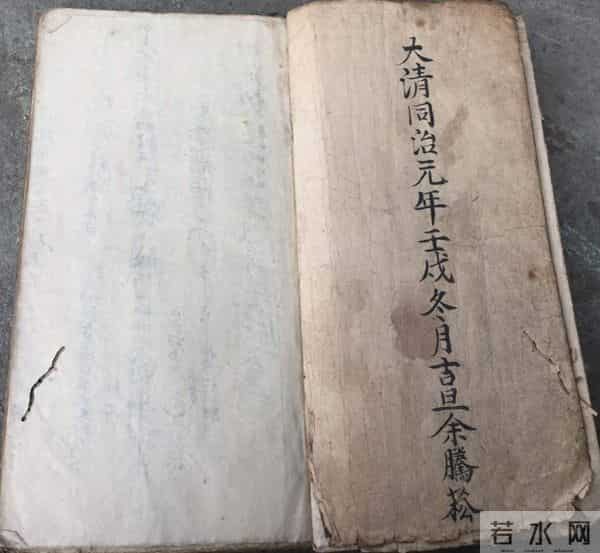 大清同治元年壬戌冬月吉旦余騰菘
若水网